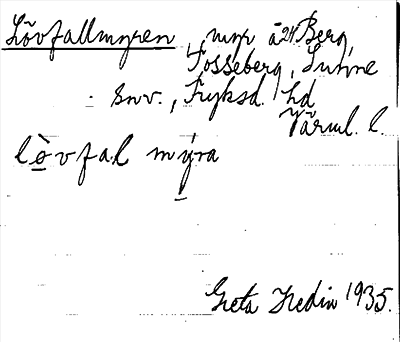 Lövfallmyren, myr å 2/1 Berg,
Tosseberg, Sunne
snv., Fryksd. hd
Värml. l.
lò̱vfal mýra
Greta Hedin 1935.